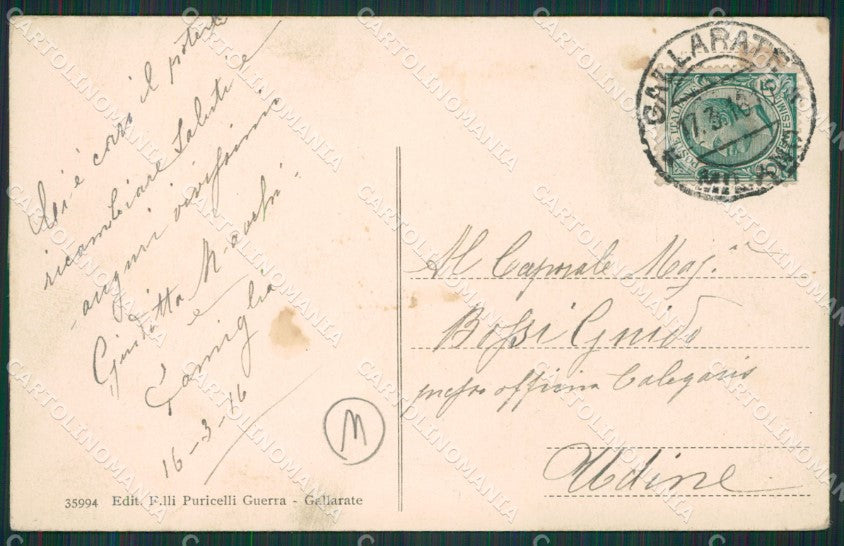 Ci è caro il poterle
ricambiare saluti e
auguri vivissimi
Giuditta
e
Famiglia
16-3-16
M
35994 Edit. F.lli Puricelli Guerra - Gallarate
GALLARATE
MILANO
17.3.16
Al Caporale Mag.e
Bossi Guido
presso officina Calegaris
Udine
CARTOLINOMANIA